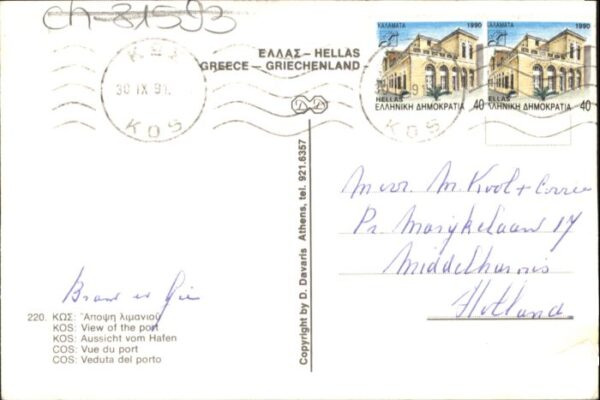 Ch-31593
ΚΩΣ
30 IX 91
KOS
ΕΛΛΑΣ – HELLAS
GREECE – GRIECHENLAND
ΚΑΛΑΜΑΤΑ 1990
HELLAS
ΕΛΛΗΝΙΚΗ ΔΗΜΟΚΡΑΤΙΑ 40
ΚΑΛΑΜΑΤΑ 1990
HELLAS
ΕΛΛΗΝΙΚΗ ΔΗΜΟΚΡΑΤΙΑ 40
91
KOS
Copyright by D. Davaris Athens, tel. 921.6357
M. Kool + 
Pr. Marijkelaan 17
Middelharnis
Holland
220. ΚΩΣ: Ἄποψη λιμανιοῦ
KOS: View of the port
KOS: Aussicht vom Hafen
COS: Vue du port
COS: Veduta del porto